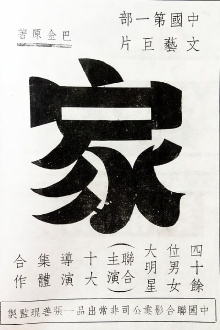 中國第一部
文藝巨片
巴金原著
家
四十餘
位男女
大明星
(聯合主演)
十大
導演
集體
合作
中國聯合影業公司非常出品—張善琨監製